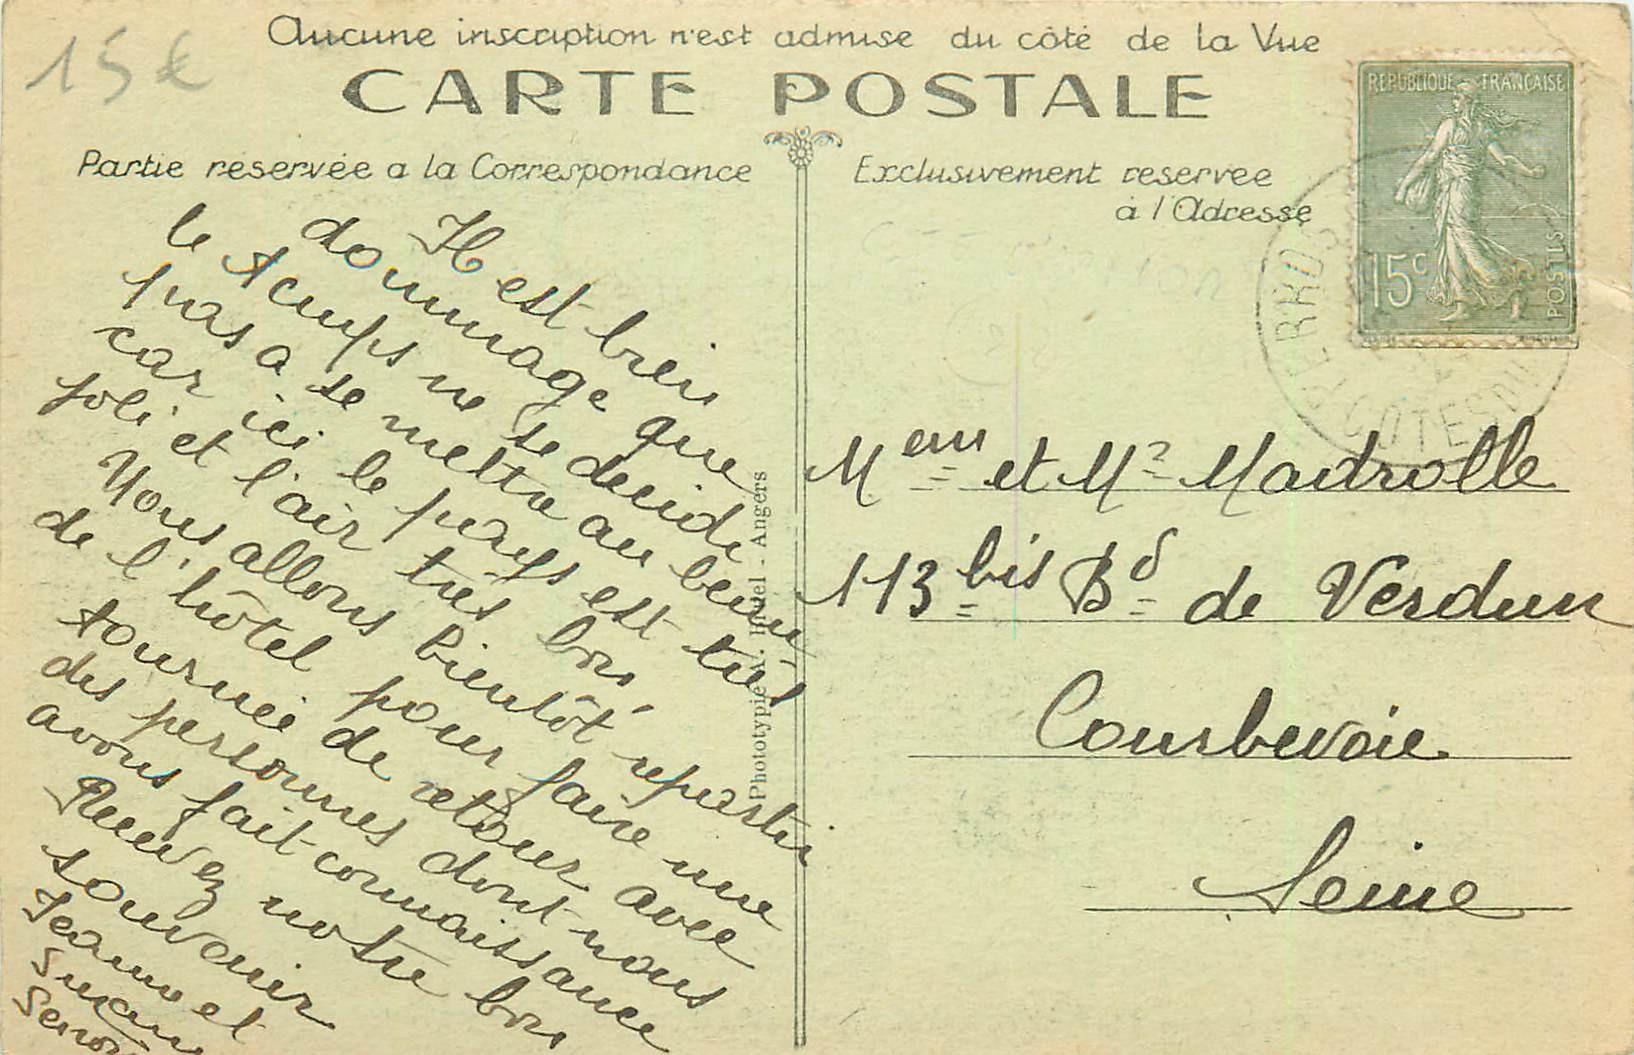 15€
Aucune inscription n'est admise du côté de la Vue
CARTE POSTALE
Partie réservée a la Correspondance
Exclusivement reservee
à l'Adresse
REPUBLIQUE FRANÇAISE
15c
POSTES
COTES DU
Il est bien
dommage que
le temps ne se decide
pas a se mettre au beau,
car ici le pays est très
joli et l'air très bon,
Nous allons bientôt repartir
de l'hôtel pour faire une
tournée de retour avec
des personnes dont nous
avons fait connaissance
Recevez notre bon
souvenir
Jeanne et
Phototypie A. Bruel - Angers
Mem et Mr Madrolle
113 bis Bd de Verdun
Courbevoie
Seine